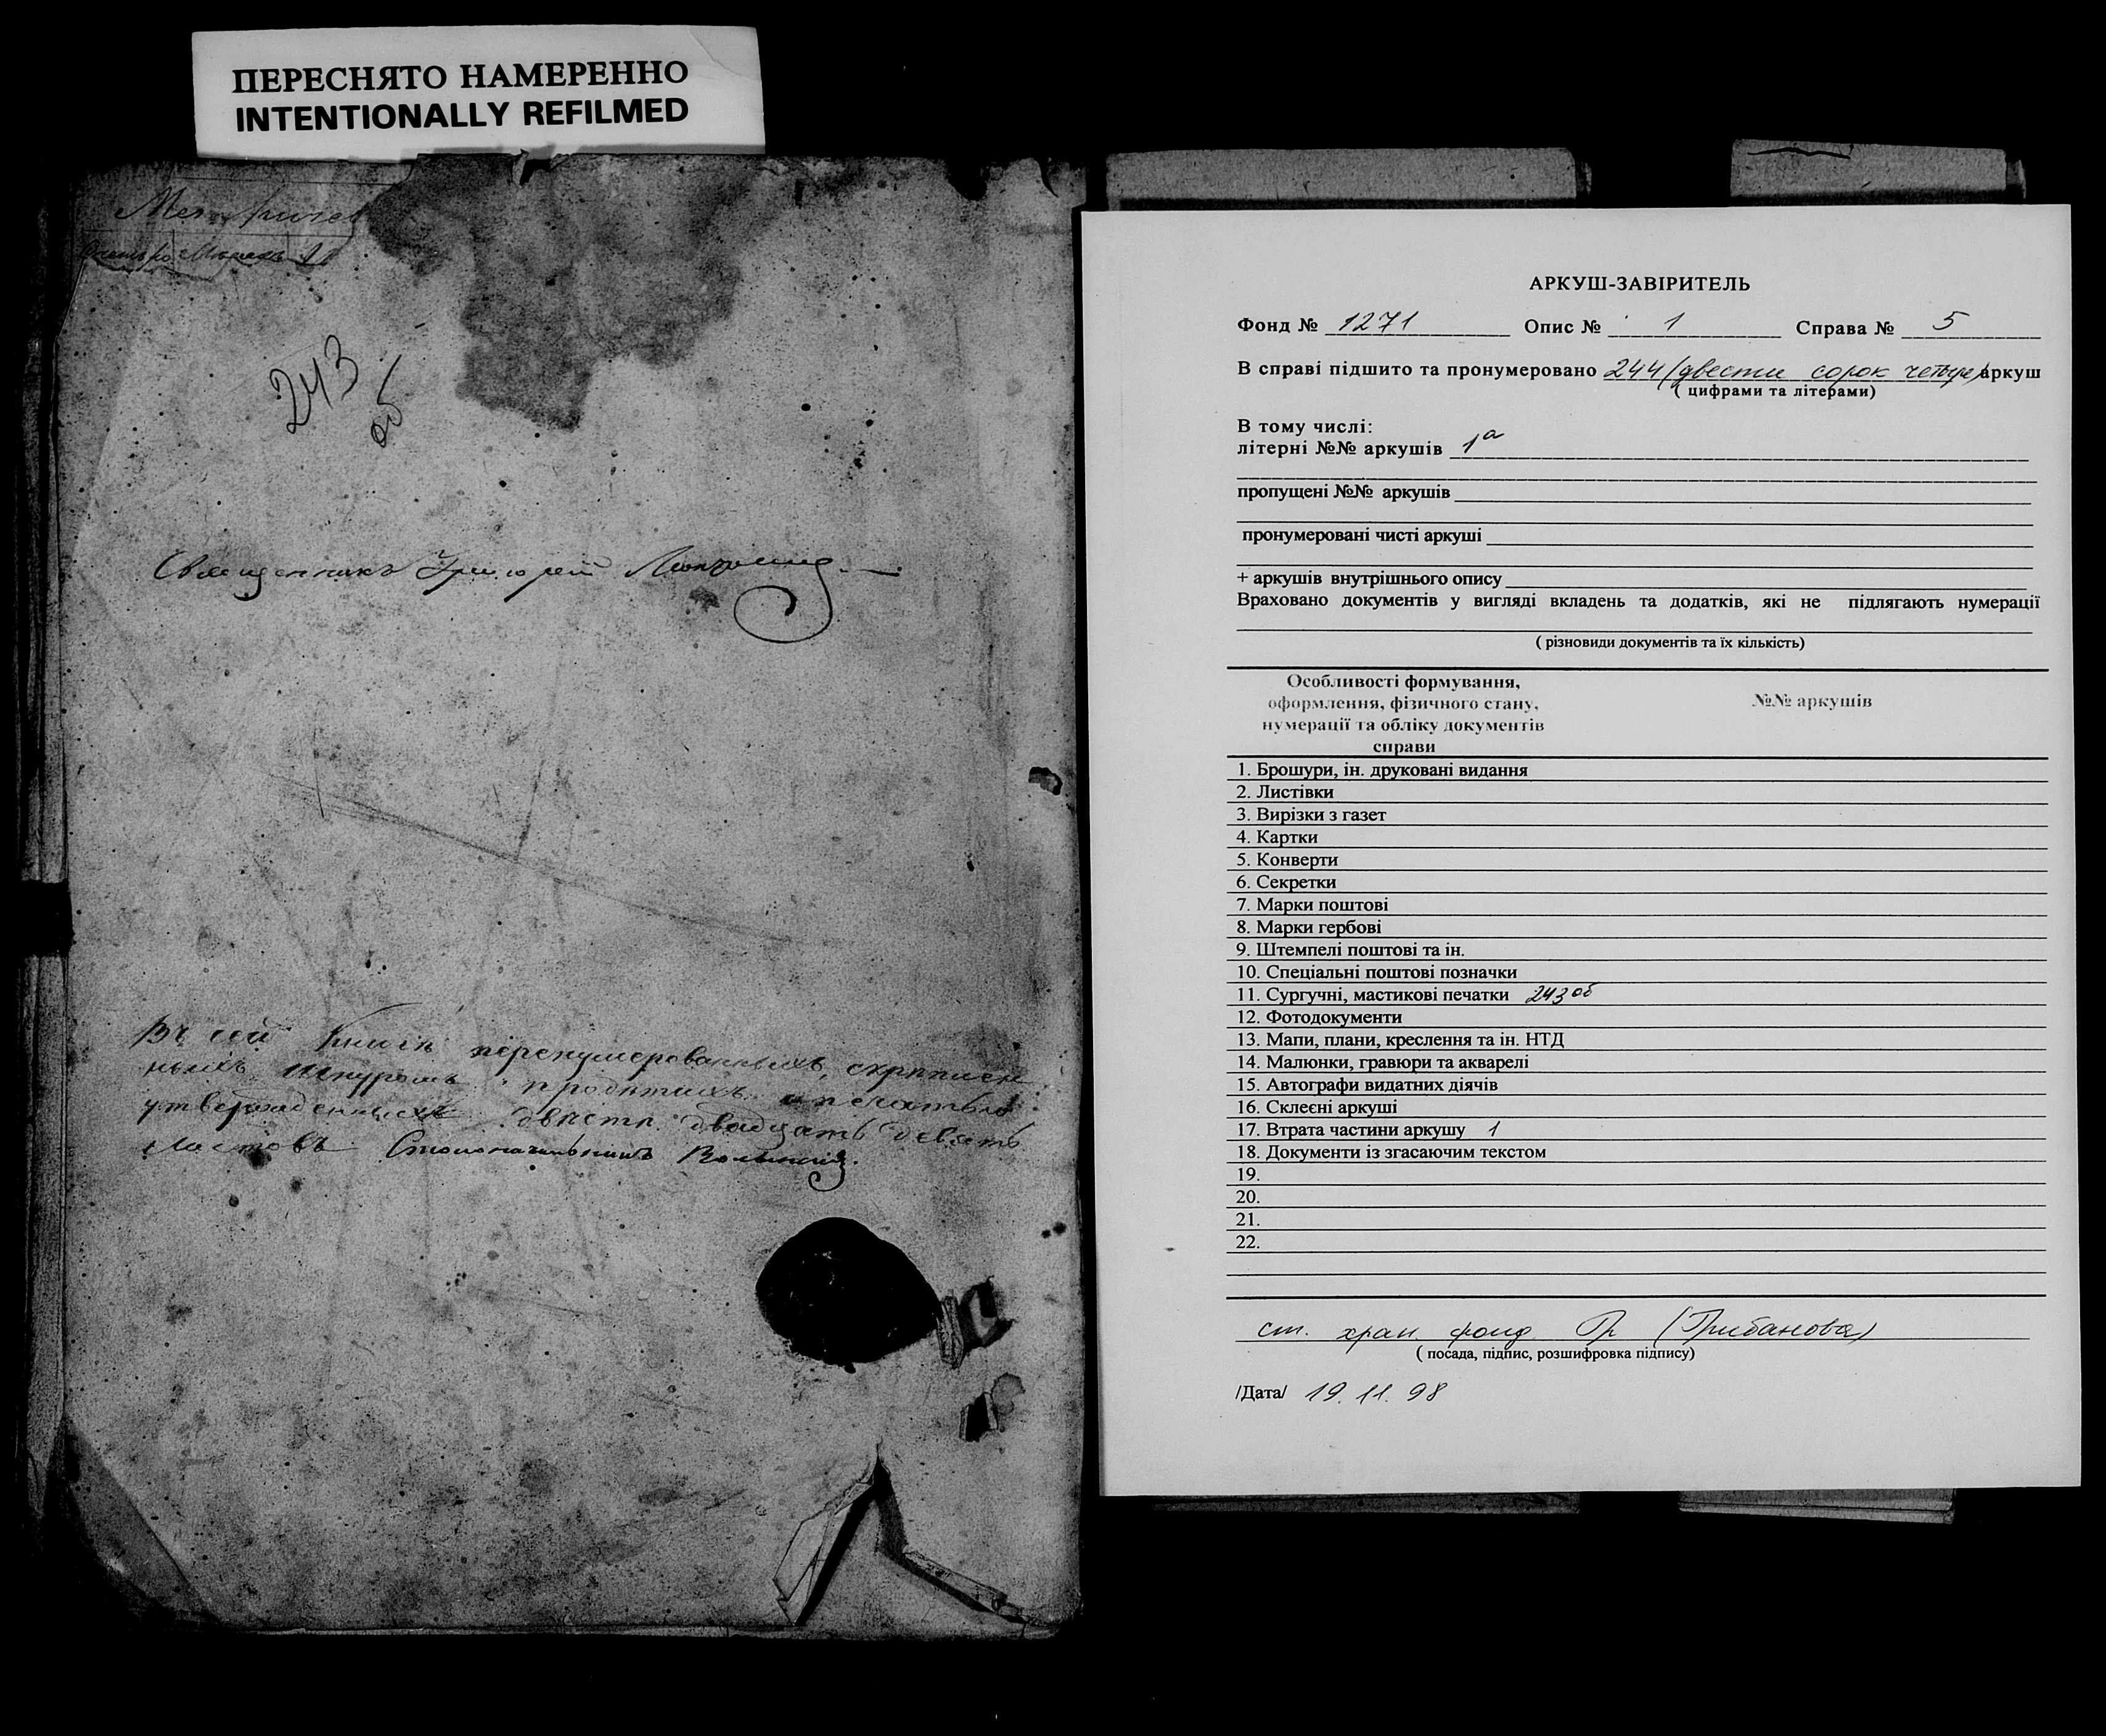 ПЕРЕСНЯТО НАМЕРЕННО
INTENTIONALLY REFILMED
243
об
Священникъ Григорей
Въ сей Книгѣ перенумерованныхъ, скрѣплен
ныхъ шнуромъ продѣтыхъ и печатью
утвержденныхъ двѣсти двадцать девять
листовъ Столоначальникъ
АРКУШ-ЗАВІРИТЕЛЬ
Фонд № 1271 Опис № 1 Справа № 5
В справі підшито та пронумеровано 244 (двести сорок четыре) аркуш
( цифрами та літерами)
В тому числі:
літерні №№ аркушів 1а
пропущені №№ аркушів
пронумеровані чисті аркуші
+ аркушів внутрішнього опису
Враховано документів у вигляді вкладень та додатків, які не підлягають нумерації
( різновиди документів та їх кількість)
Особливості формування, 
оформлення, фізичного стану, №№ аркушів
нумерації та обліку документів
справи
1. Брошури, ін. друковані видання
2. Листівки
3. Вирізки з газет
4. Картки
5. Конверти
6. Секретки
7. Марки поштові
8. Марки гербові
9. Штемпелі поштові та ін.
10. Спеціальні поштові позначки
11. Сургучні, мастикові печатки 243об
12. Фотодокументи
13. Мапи, плани, креслення та ін. НТД
14. Малюнки, гравюри та акварелі
15. Автографи видатних діячів
16. Склеєні аркуші
17. Втрата частини аркушу 1
18. Документи із згасаючим текстом
19.
20.
21.
22.
ст. хран. фонд Гр (Грибанова)
( посада, підпис, розшифровка підпису)
/Дата/ 19.11.98